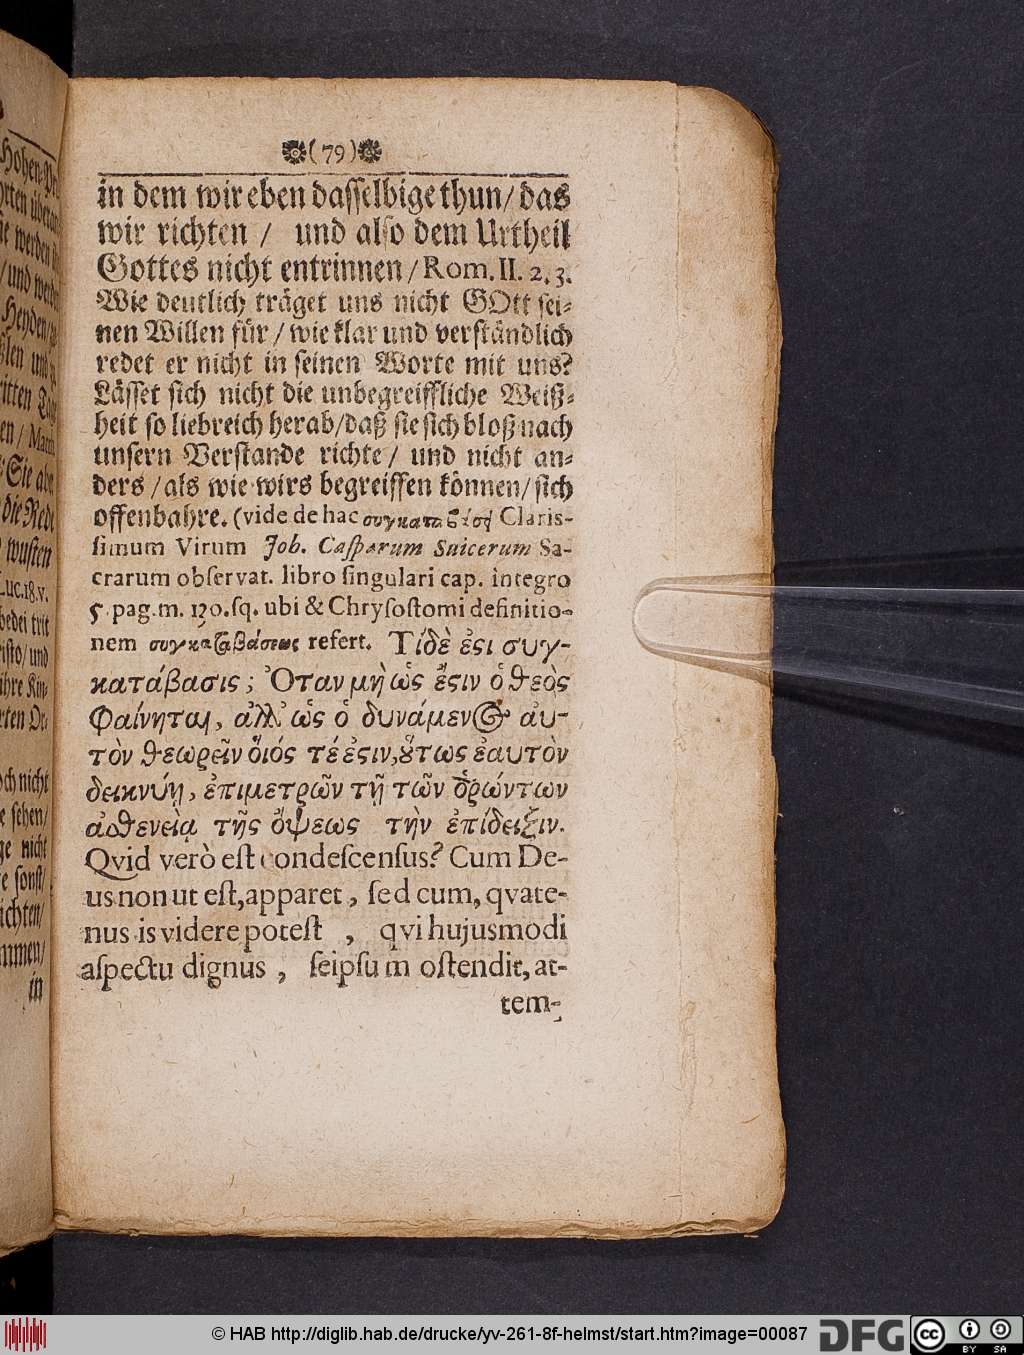 (79)
in dem wir eben dasselbige thun/ das
wir richten / und also dem Urtheil
Gottes nicht entrinnen / Rom. II. 2. 3.
Wie deutlich träget uns nicht GOtt sei-
nen Willen für / wie klar und verständlich
redet er nicht in seinen Worte mit uns?
Lässet sich nicht die unbegreiffliche Weiß-
heit so liebreich herab/ daß sie sich bloß nach
unsern Verstande richte / und nicht an-
ders / als wie wirs begreiffen können/ sich
offenbahre. (vide de hac Claris-
simum Virum Joh. Casparum Suicerum Sa-
crarum observat. libro singulari cap. integro
5. pag. m. 130. sq. ubi & Chrysostomi definitio-
nem συγκαταβάσεως refert. Τί δὲ ἐςι συγ-
κατάβασις; Ὅταν μὴ ὡς ἔςιν ὁ θεὸς
φαίνηται, ἀλλ' ὡς ὁ δυνάμεν⊙ αὐ-
τὸν θεωρεῖν οἷός τέ ἐςιν, ὅτως ἑαυτὸν
δεικνύῃ, ἐπιμετρῶν τῇ τῶν ὁρώντων
ἀσθενείᾳ τῆς ὄψεως τὴν ἐπίδειξιν.
Qvid verò est condescensus? Cum De-
us non ut est, apparet, sed cum, qvate-
nus is videre potest , qvi hujusmodi
aspectu dignus , seipsum ostendit, at-
tem-
Hohen-
werden
/ und
Heyden/
und
ritten
en / Matth.
Sie aber
die Rede
wusten
Luc. 18. v.
isto/ und
ihre Kin-
och nicht
e sehen/
ge nicht
e sonst/
ichten/
mmen/
in
© HAB http://diglib.hab.de/drucke/yv-261-8f-helmst/start.htm?image=00087
DFG
cc
BY SA